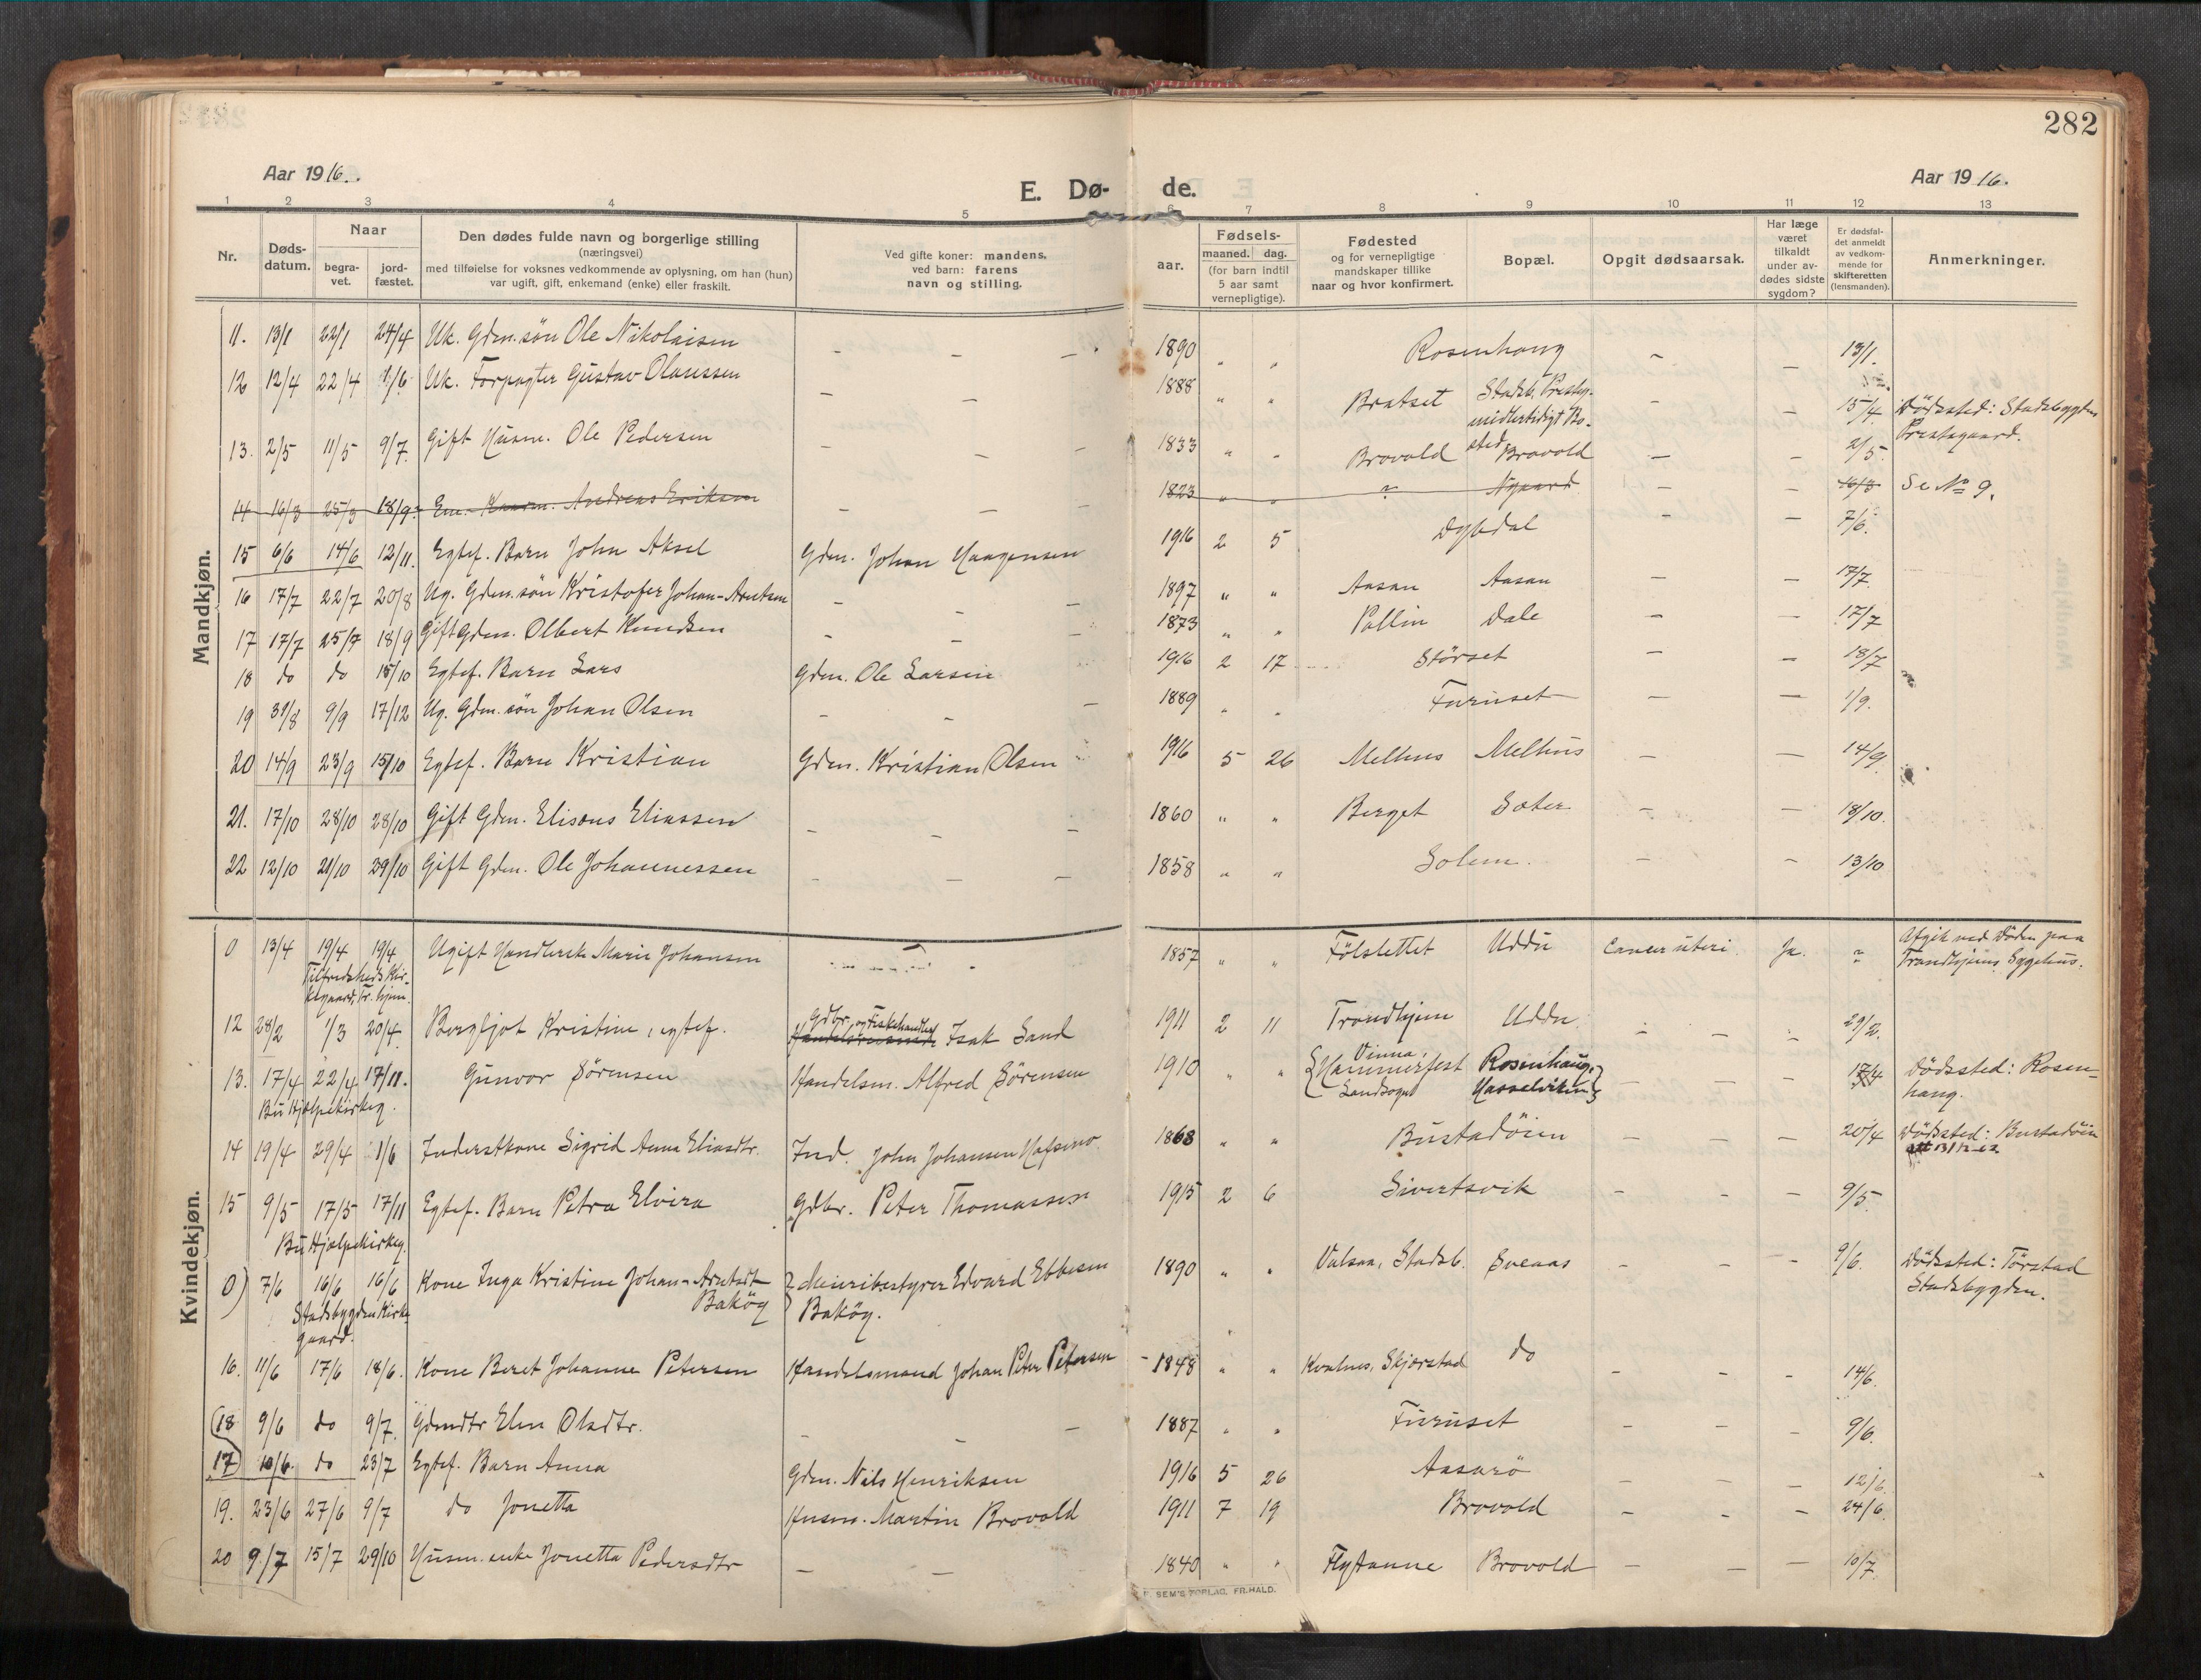 282
Aar 1916.
E. Dø-
de.
Aar 1916.
1 2 3 4 5 6 7 8 9 10 11 12 13
Nr.
Døds-
datum.
Naar
begra-
vet.
jord-
fæstet.
Den dødes fulde navn og borgerlige stilling
(næringsvei)
med tilføielse for voksnes vedkommende av oplysning, om han (hun)
var ugift, gift, enkemand (enke) eller fraskilt.
Ved gifte koner: mandens,
ved barn: farens
navn og stilling.
aar.
Fødsels-
maaned. dag.
(for barn indtil
5 aar samt
vernepligtige).
Fødested
og for vernepligtige
mandskaper tillike
naar og hvor konfirmert.
Bopæl.
Opgit dødsaarsak.
Har læge
været
tilkaldt
under av-
dødes sidste
sygdom?
Er dødsfal-
det anmeldt
av vedkom-
mende for
skifteretten
(lensmanden).
Anmerkninger.
Mandkjøn.
11. 13/1 22/1 24/4 Uk. Gdm. søn Ole Nikolaisen – – – 1890 " " Rosenhaug – – 13/1.
12 12/4 22/4 1/6 Uk. Forpagter Gustav Olaussen – – 1888 " " Bratset Stadsb. Prestg.
midlertidigt Bo-
sted – – 15/4. Dödssted: Stadsbygden
Prestegaard.
13. 2/5 11/5 9/7. Gift Husm. Ole Pedersen – – – 1833 " " Brovold Brovold – – 2/5.
14 16/3 25/3 18/9. Em. Kaarm. Andreas Eriksen – – – 1823 " " " Nygaard – – 16/3 Se No 9.
15 6/6 14/6 12/11. Egtef. Barn John Aksel Gdm. Johan Haagensen 1916 2 5 Dybdal – – 7/6.
16 17/7 22/7 20/8 Ug. Gdm. søn Kristofer Johan-Arntsen – – – 1897 " " Aasan Aasan – – 17/7.
17 17/7 25/7 18/9 Gift Gdm. Olbert Knudsen – – – 1873 " " Pallin Dale – – 17/7
18 do do 15/10 Egtef. Barn Lars Gdm. Ole Larsen 1916 2 17 Störset – – 18/7
19 31/8 9/9 17/12 Ug. Gdm. søn Johan Olsen – – – 1889 " " Furuset – – 1/9.
20 14/9 23/9 15/10 Egtef. Barn Kristian Gdm. Kristian Olsen 1916 5 26 Melhus Melhus – – 14/9.
21. 17/10 28/10 28/10 Gift Gdm. Elisæus Eliassen – – – 1860 " " Berget Sæter – – 18/10.
22 12/10 21/10 29/10 Gift Gdm. Ole Johannessen – – – 1858 " " Solem. – – 13/10
Kvindekjøn.
0 13/4 19/4 19/4 Ugift Handlersk Marie Johansen – 1857 " " Fölslettet Uddu Cancer uteri. Ja. Afgik ved Döden paa
Trondhjems Sygehus.
Tilfredsheds Kir-
kegaard, Tr.hjem.
12 28/2 1/3 20/4. Bergljot Kristine, egtef. Gdbr. og Fiskehandler
Isak Sand 1911 2 11 Trondhjem Uddu – – – 29/2.
13. 17/4 22/4 17/11. Gunvor Sörensen Handelsm. Alfred Sörensen 1910 " " Vinna,
Hammerfest
Landsogn Rosenhaug,
Hasselviken – – – 17/4 Dödssted: Rosen-
haug.
Bu Hjælpekirkeg.
14 19/4 29/4 1/6 Inderstkone Sigrid Anna Eliasdtr. Ind. John Johansen Hafsmo 1868 " " Bustadöien – – – 20/4 Dödssted: Bustadöien
15 9/5 17/5 17/11 Egtef. Barn Petra Elvira Gdbr. Peter Thomassen 1915 2 6 Sivertsvik – – – 9/5.
Bu Hjælpekirkeg.
0) 7/6 16/6 16/6 Kone Inga Kristine Johan-Arntsdt
Baköy Meieribestyrer Edvard Ebbesen
Baköy. 1890 " " Valsaa, Stadsb. Sveaas – – – 9/6. Dödssted: Törstad
Stadsbygden.
Stadsbygden Kirke
gaard.
16. 11/6 17/6 18/6. Kone Beret Johanne Petersen Handelsmand Johan Peter Petersen – 1848 " " Kvalnes, Skjerstad do – – – 14/6.
18 9/6 do 9/7. Gdmdtr Elen Olsdtr. – – – 1887 " " Furuset – – – 9/6.
17 10/6. do 23/7 Egtef. Barn Anna Gdm. Nils Henriksen 1916 5 26 Aasarö – – – 12/6.
19. 23/6 27/6 9/7 do Jonetta Husm. Martin Brovold 1911 7 19 Brovold – – – 24/6.
20 9/7 15/7 29/10 Husm. enke Jonetta Pedersdtr – – 1840 " " Flytanne Brovold – – – 10/7.
SEM'S FORLAG. FR.HALD.